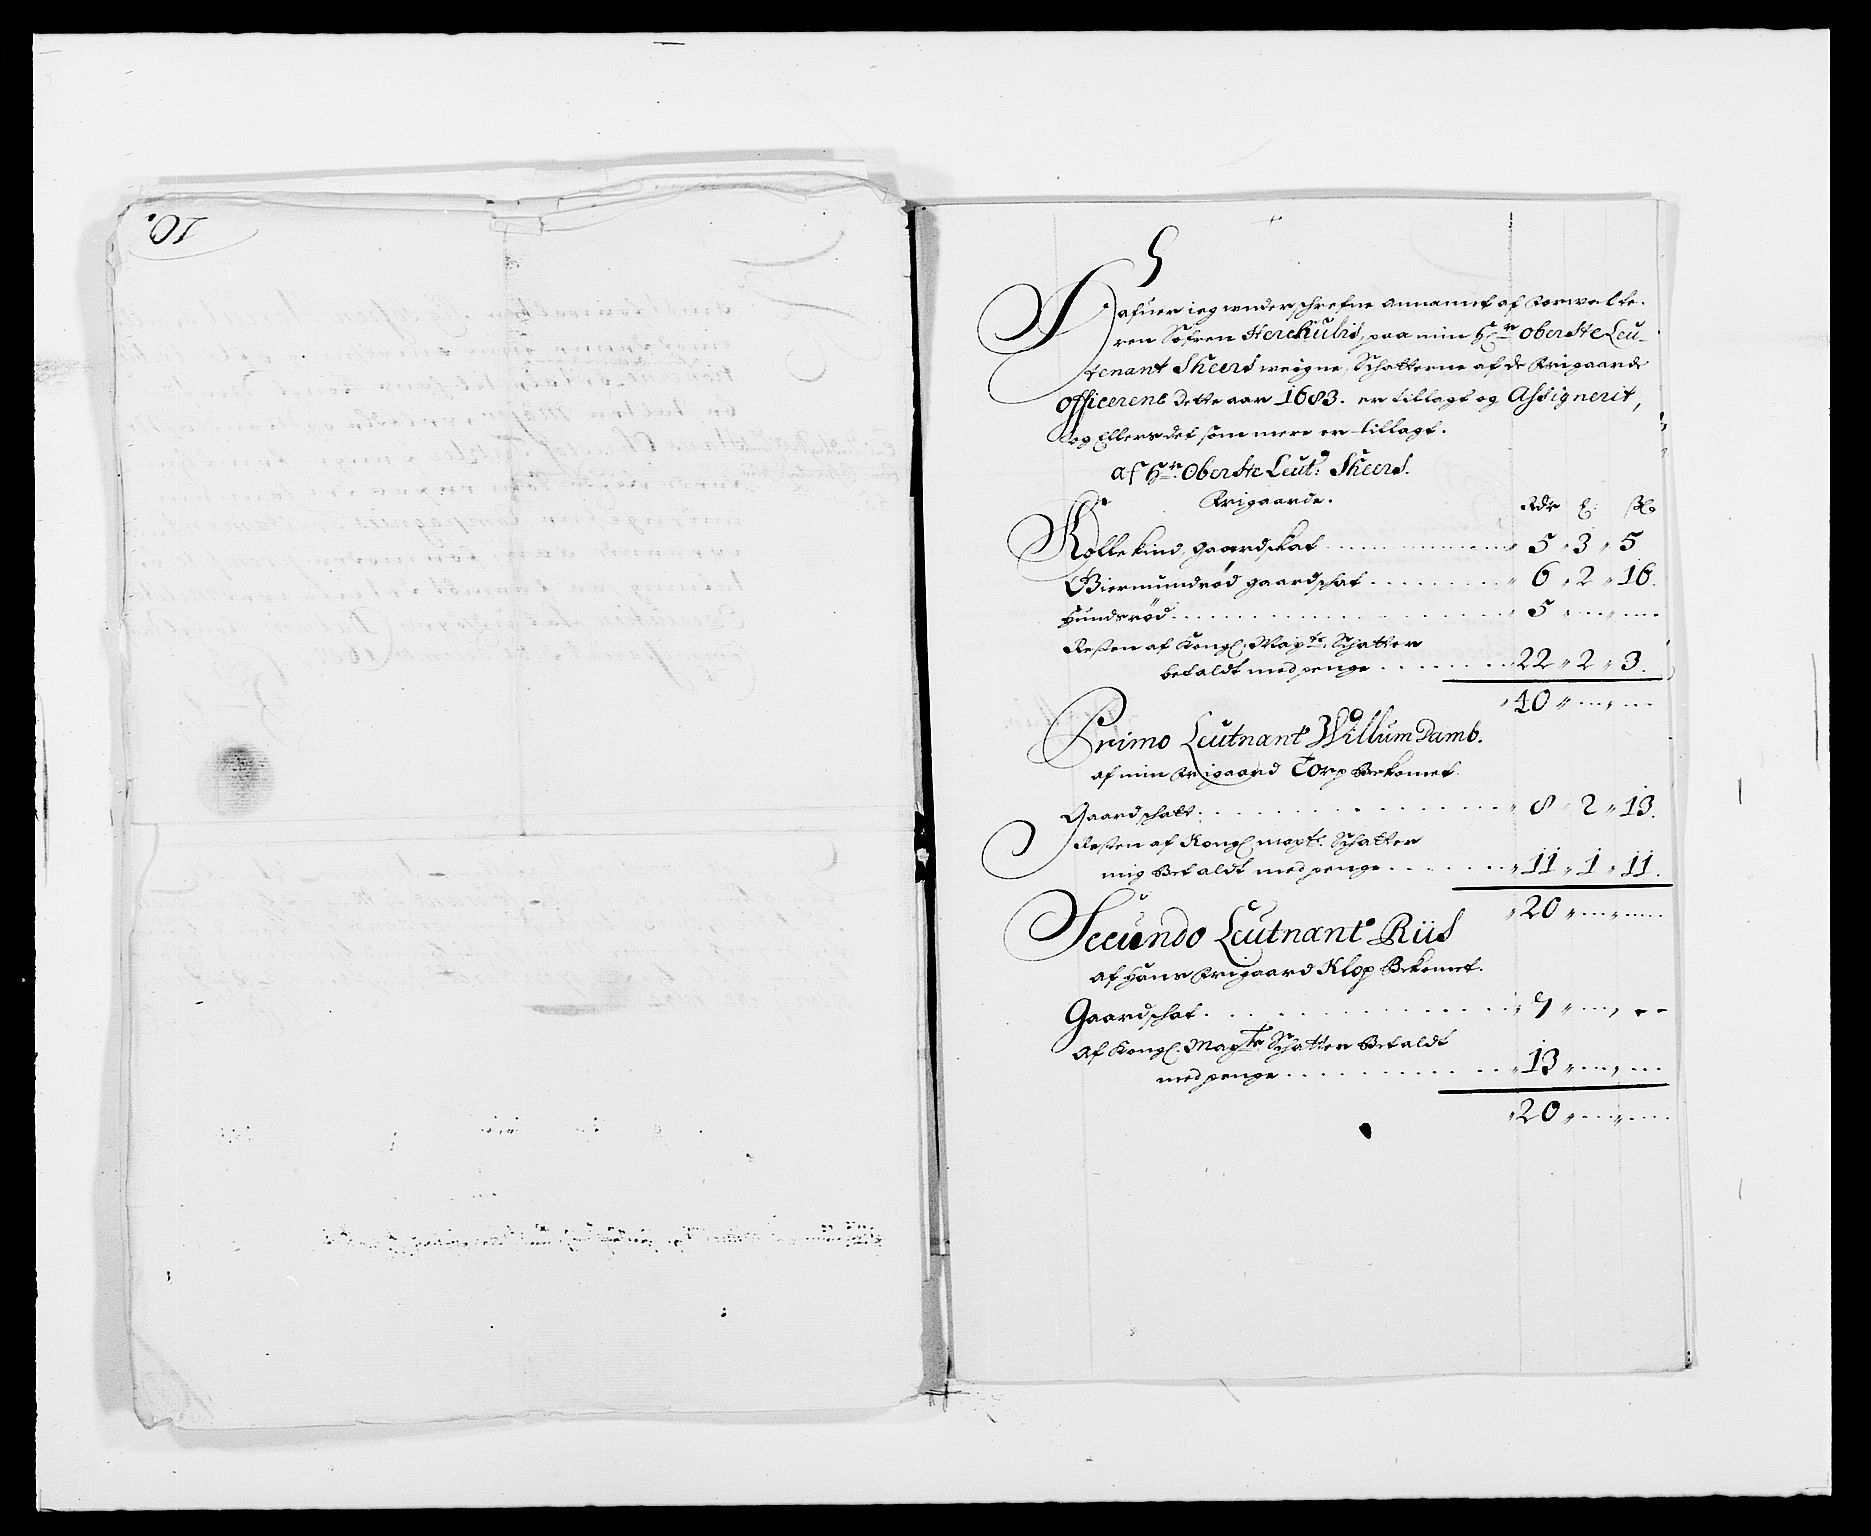 10.
5
Hafuer ieg underschrefne annammet af Forwalte-
ren Søfren Herchulis, paa min Hr Oberste Leu-
tenant Skeers weigne, Schatterne af de Frigaarde
officerene dette aar 1683. er tillagt og Assignerit,
og Ellers det som mere er tillagt.
af Hr. Oberste Leut: Skeers.
Frigaarde. Rdr
Kollekind, gaardskat 5 3 5
Biermundrød gaardschat 6 2 16.
Hundsrød 5
Resten af Kongl. Mayts. Schatter
betaldt med penge 22 2 3.
40
Primo Leutnant Willum Damb.
af min Frigaard Torp Bekomet.
Gaardschatt 8 2 13.
Resten af Kongl. mayts. Schatter
mig Betaldt med penge 11 1 11.
20
Secundo Leutnant Riis
af Hans Frigaard Klop Bekomet.
Gaardschat 7
Af Kongl. Mayts Schatter Betaldt
med penge 13
20